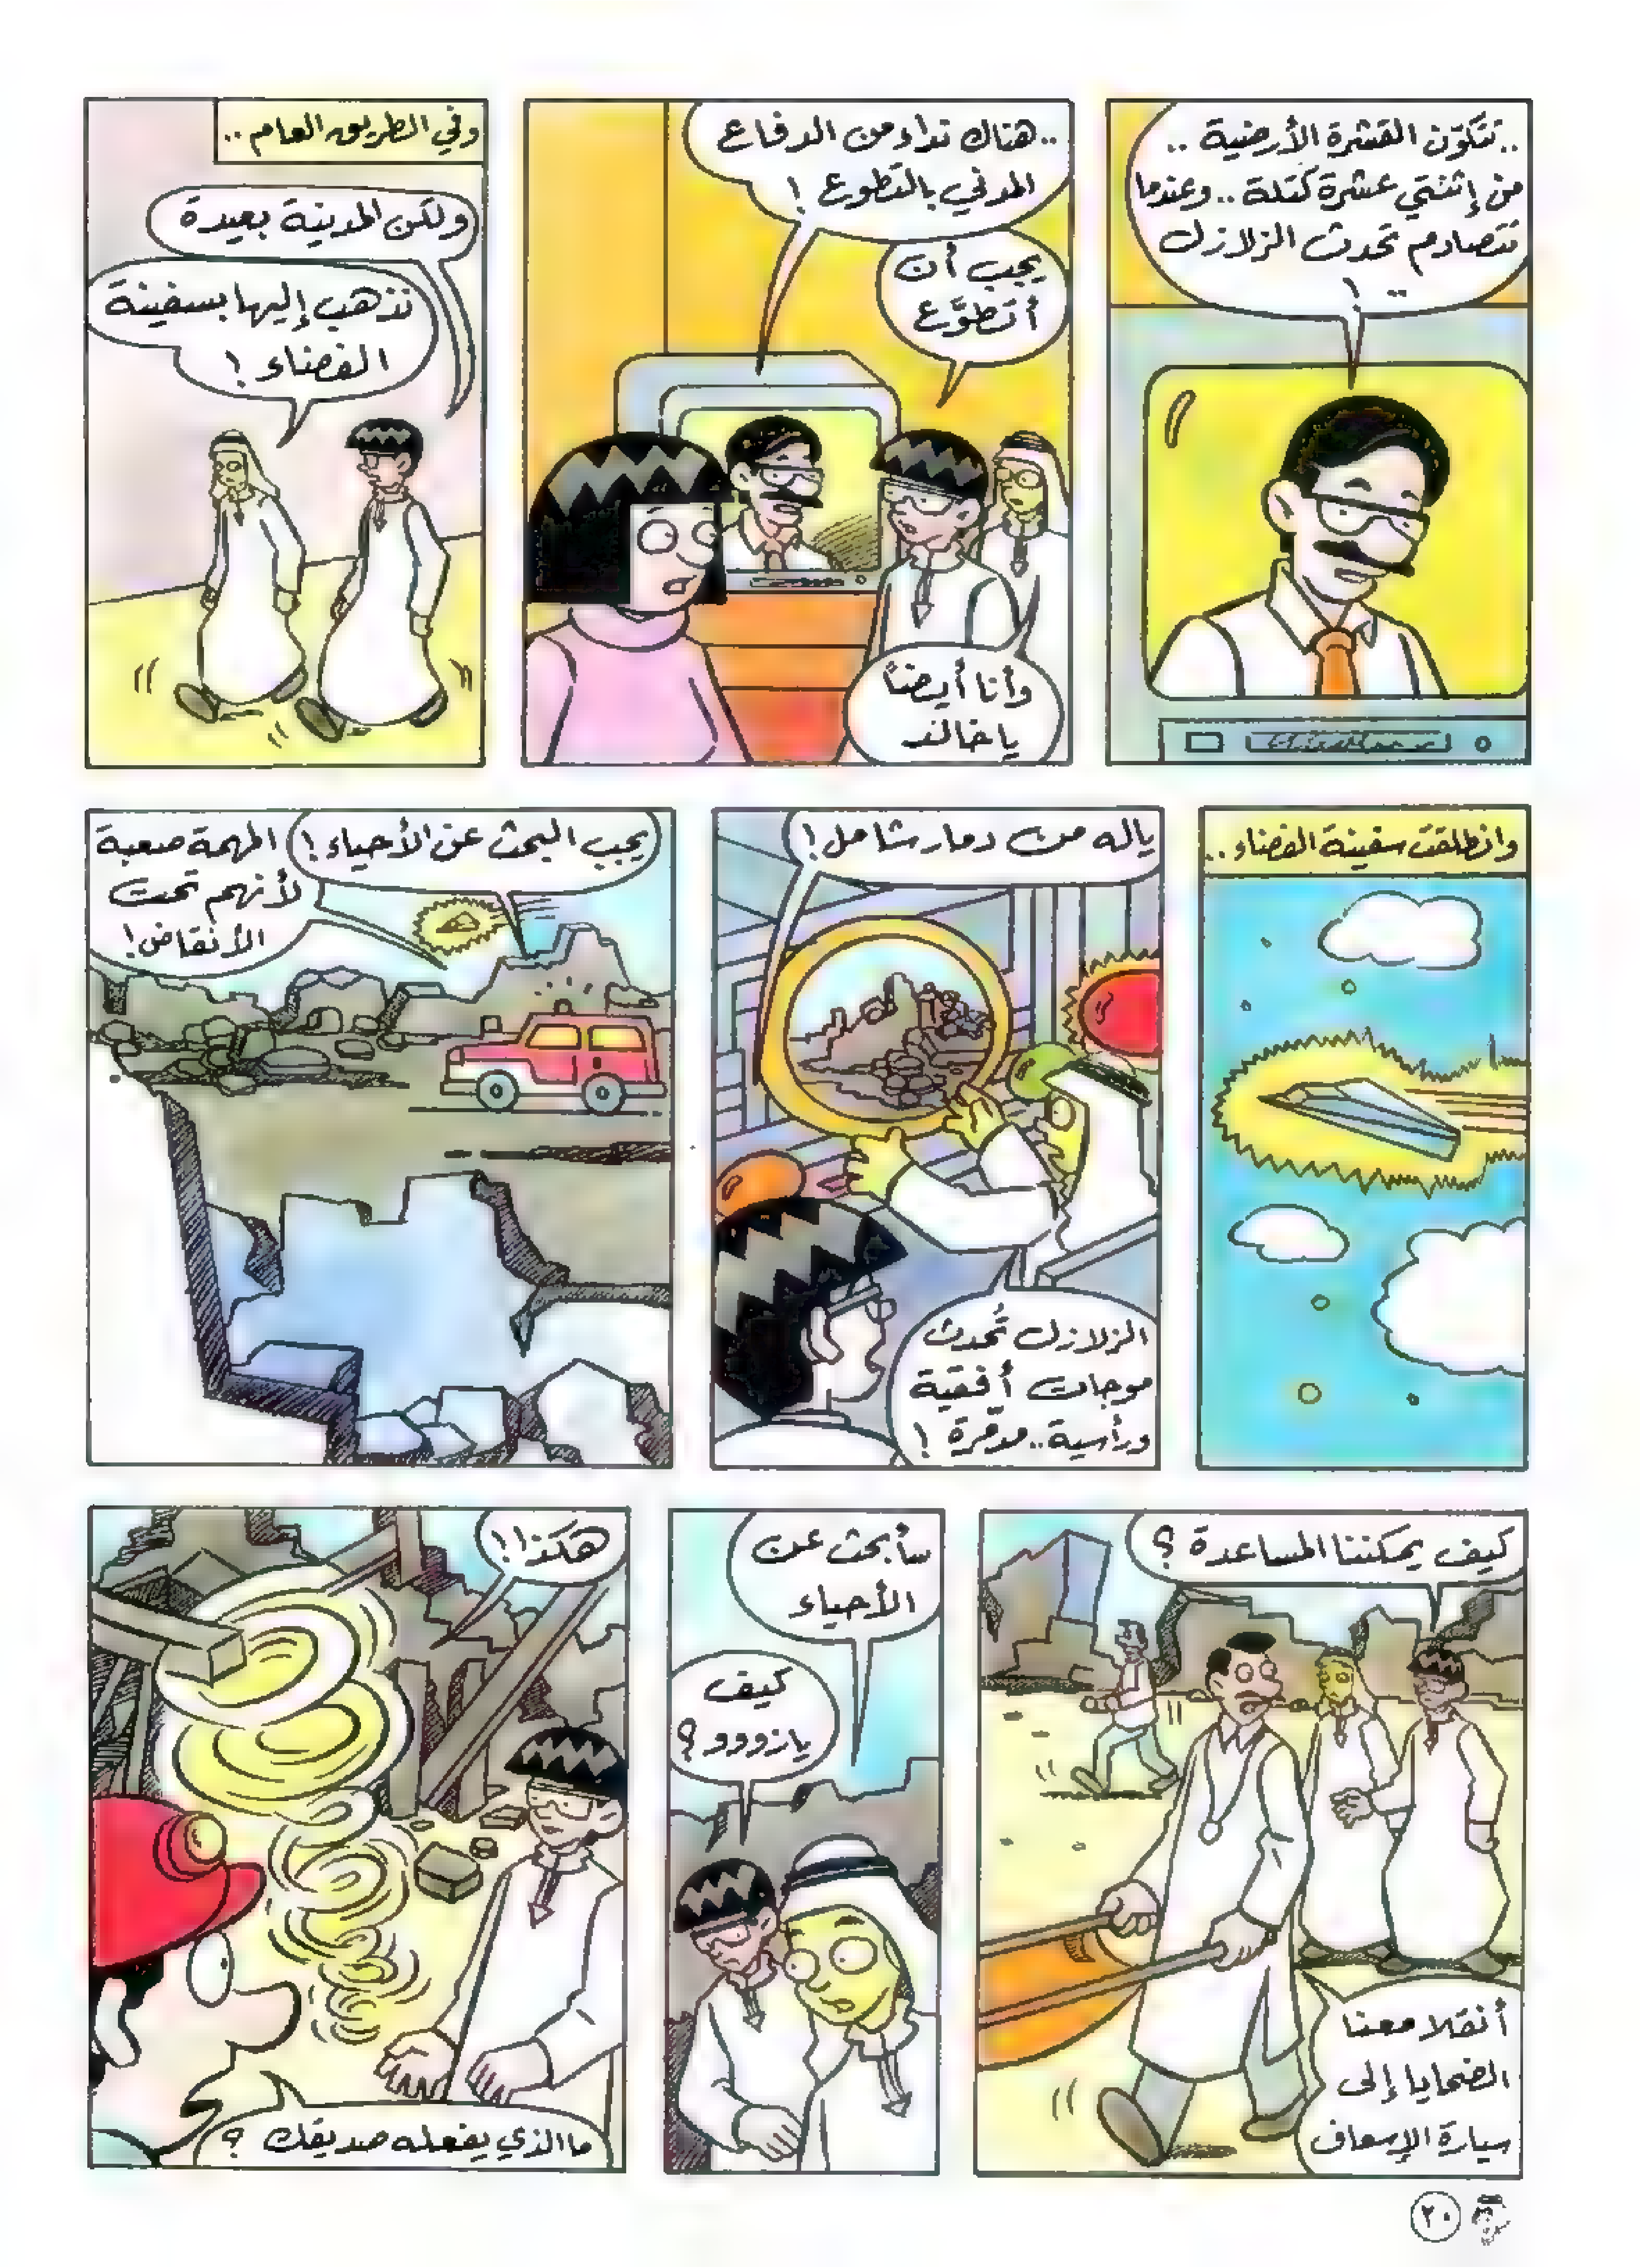 ..تتكوّن القشرة الأرضية ..
من إثنتي عشرة كتلة .. وعندما
تتصادم تحدث الزلازل
.. !
..هناك نداء من الدفاع
المدني بالتطوع !
يجب أن
أتطوّع
وأنا أيضاً
يا خالد
وفي الطريق العام ..
ولكن المدينة بعيدة
نذهب إليها بسفينة
الفضاء !
وانطلقت سفينة الفضاء ..
ياله من دمار شامل !
الزلازل تُحدث
موجات أفقية
ورأسية .. مدمّرة !
يجب البحث عن الأحياء !
المهمة صعبة
لأنهم تحت
الأنقاض !
كيف يمكننا المساعدة ؟
أنقلا معنا
الضحايا إلى
سيارة الإسعاف
سأبحث عن
الأحياء
كيف
يا زووو ؟
هكذا !
ما الذي يفعله صديقك ؟
٢٠